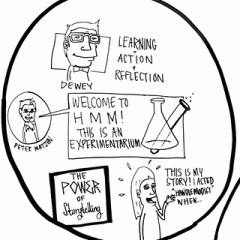 LEARNING
=
ACTION
+
REFLECTION
DEWEY
WELCOME TO
HMM!
THIS IS AN
EXPERIMENTARIUM
PETER
THE
POWER
OF
Storytelling
THIS IS MY
STORY! I ACTED
WHEN...